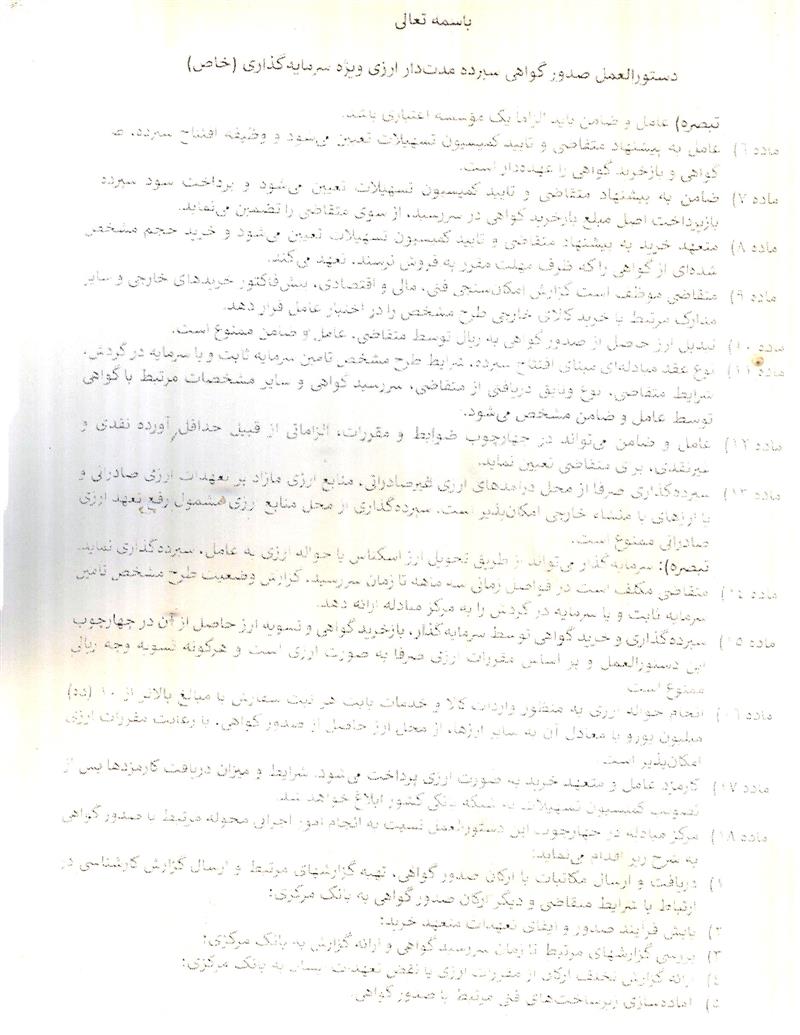 باسمه تعالی
دستورالعمل صدور گواهی سپرده مدت‌دار ارزی ویژه سرمایه‌گذاری (خاص)
تبصره) عامل و ضامن باید الزاماً یک مؤسسه اعتباری باشد.
ماده ۶) عامل به پیشنهاد متقاضی و تایید کمیسیون تسهیلات تعیین می‌شود و وظیفه افتتاح سپرده، ص
گواهی و بازخرید گواهی را عهده‌دار است.
ماده ۷) ضامن به پیشنهاد متقاضی و تایید کمیسیون تسهیلات تعیین می‌شود و پرداخت سود سپرده
بازپرداخت اصل مبلغ بازخرید گواهی در سررسید، از سوی متقاضی را تضمین می‌نماید.
ماده ۸) متعهد خرید به پیشنهاد متقاضی و تایید کمیسیون تسهیلات تعیین می‌شود و خرید حجم مشخص
شده‌ای از گواهی را که ظرف مهلت مقرر به فروش نرسند، تعهد می‌کند.
ماده ۹) متقاضی موظف است گزارش امکان‌سنجی فنی، مالی و اقتصادی، پیش‌فاکتور خریدهای خارجی و سایر
مدارک مرتبط با خرید کالای خارجی طرح مشخص را در اختیار عامل قرار دهد.
ماده ۱۰) تبدیل ارز حاصل از صدور گواهی به ریال توسط متقاضی، عامل و ضامن ممنوع است.
ماده ۱۱) نوع عقد مبادله‌ای مبنای افتتاح سپرده، شرایط طرح مشخص تامین سرمایه ثابت و یا سرمایه در گردش،
شرایط متقاضی، نوع وثایق دریافتی از متقاضی، سررسید گواهی و سایر مشخصات مرتبط با گواهی
توسط عامل و ضامن مشخص می‌شود.
ماده ۱۲) عامل و ضامن می‌تواند در چهارچوب ضوابط و مقررات، الزاماتی از قبیل حداقل آورده نقدی و
غیرنقدی، برای متقاضی تعیین نماید.
ماده ۱۳) سپرده‌گذاری صرفا از محل درآمدهای ارزی غیرصادراتی، منابع ارزی مازاد بر تعهدات ارزی صادراتی و
یا ارزهای با منشاء خارجی امکان‌پذیر است. سپرده‌گذاری از محل منابع ارزی مشمول رفع تعهد ارزی
صادراتی ممنوع است.
تبصره): سرمایه‌گذار می‌تواند از طریق تحویل ارز اسکناس یا حواله ارزی به عامل، سپرده‌گذاری نماید.
ماده ۱۴) متقاضی مکلف است در فواصل زمانی سه ماهه تا زمان سررسید، گزارش وضعیت طرح مشخص تامین
سرمایه ثابت و یا سرمایه در گردش را به مرکز مبادله ارائه دهد.
ماده ۱۵) سپرده‌گذاری و خرید گواهی توسط سرمایه‌گذار، بازخرید گواهی و تسویه ارز حاصل از آن در چهارچوب
این دستورالعمل و بر اساس مقررات ارزی صرفا به صورت ارزی است و هرگونه تسویه وجه ریالی
ممنوع است
ماده ۱۶) انجام حواله ارزی به منظور واردات کالا و خدمات بابت هر ثبت سفارش با مبالغ بالاتر از ۱۰ (ده)
میلیون یورو یا معادل آن به سایر ارزها، از محل ارز حاصل از صدور گواهی، با رعایت مقررات ارزی
امکان‌پذیر است.
ماده ۱۷) کارمزد عامل و متعهد خرید به صورت ارزی پرداخت می‌شود. شرایط و میزان دریافت کارمزدها پس از
تصویب کمیسیون تسهیلات به شبکه بانکی کشور ابلاغ خواهد شد.
ماده ۱۸) مرکز مبادله در چهارچوب این دستورالعمل نسبت به انجام امور اجرایی محوله مرتبط با صدور گواهی
به شرح زیر اقدام می‌نماید:
۱) دریافت و ارسال مکاتبات با ارکان صدور گواهی، تهیه گزارشهای مرتبط و ارسال گزارش کارشناسی در
ارتباط با شرایط متقاضی و دیگر ارکان صدور گواهی به بانک مرکزی؛
۲) پایش فرآیند صدور و ایفای تعهدات متعهد خرید؛
۳) بررسی گزارشهای مرتبط تا زمان سررسید گواهی و ارائه گزارش به بانک مرکزی؛
۴) ارائه گزارش تخلف ارکان از مقررات ارزی یا نقض تعهدات ایشان به بانک مرکزی؛
۵) آماده‌سازی زیرساخت‌های فنی مرتبط با صدور گواهی.